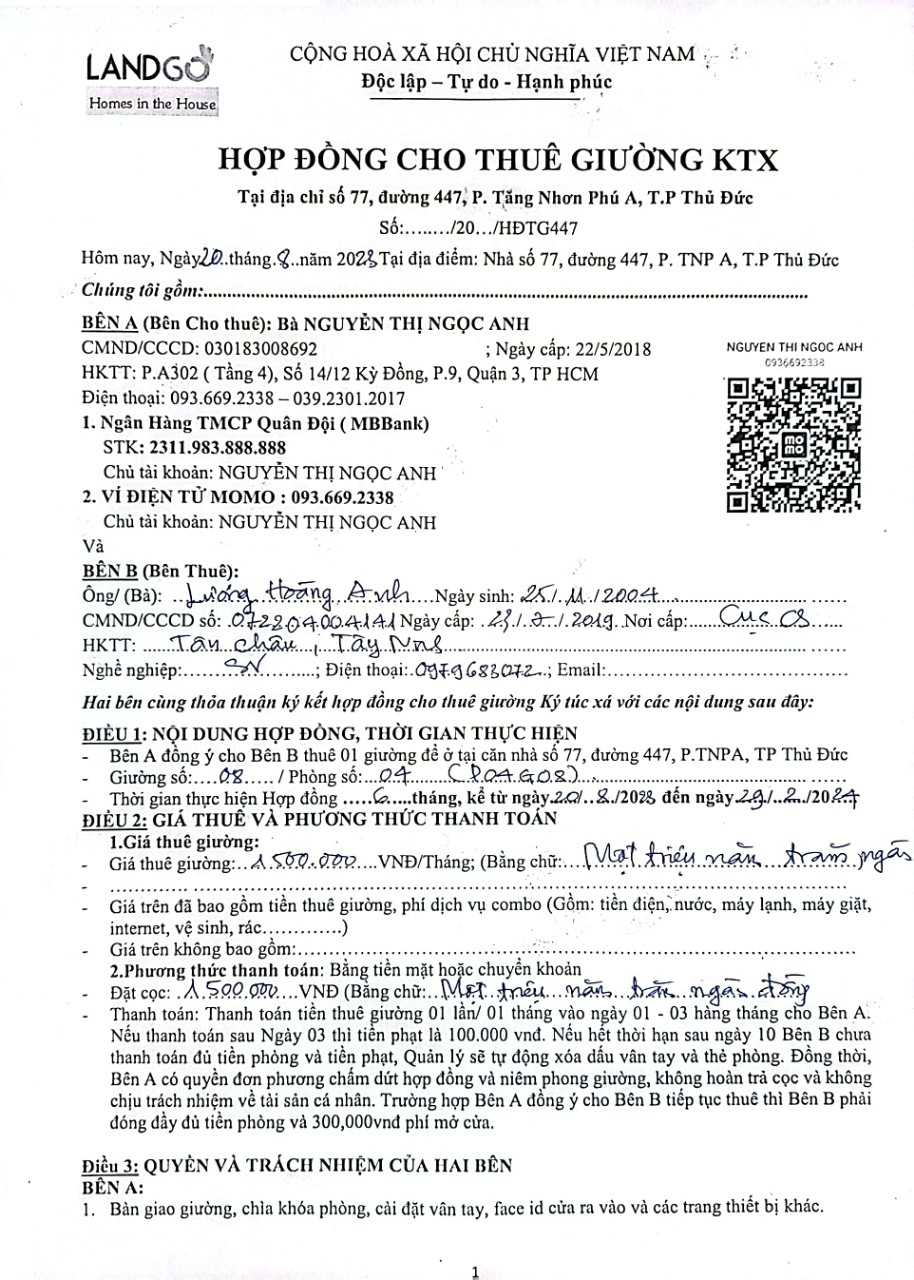 LANDGO
Homes in the House
CỘNG HOÀ XÃ HỘI CHỦ NGHĨA VIỆT NAM
Độc lập – Tự do - Hạnh phúc
HỢP ĐỒNG CHO THUÊ GIƯỜNG KTX
Tại địa chỉ số 77, đường 447, P. Tăng Nhơn Phú A, T.P Thủ Đức
Số:......../20.../HĐTG447
Hôm nay, Ngày 20..tháng.8..năm 2023 Tại địa điểm: Nhà số 77, đường 447, P. TNP A, T.P Thủ Đức
Chúng tôi gồm:...............................................................
BÊN A (Bên Cho thuê): Bà NGUYỄN THỊ NGỌC ANH
CMND/CCCD: 030183008692 ; Ngày cấp: 22/5/2018
HKTT: P.A302 ( Tầng 4), Số 14/12 Kỳ Đồng, P.9, Quận 3, TP HCM
Điện thoại: 093.669.2338 – 039.2301.2017
1. Ngân Hàng TMCP Quân Đội ( MBBank)
STK: 2311.983.888.888
Chủ tài khoản: NGUYỄN THỊ NGỌC ANH
2. VÍ ĐIỆN TỬ MOMO : 093.669.2338
Chủ tài khoản: NGUYỄN THỊ NGỌC ANH
NGUYEN THI NGOC ANH
0936692338
mo
mo
Và
BÊN B (Bên Thuê):
Ông/ (Bà): ...Lương Hoàng Anh....Ngày sinh: 25./.11./2004...............................
CMND/CCCD số: .072204004141 Ngày cấp: .23/.7./.2019. Nơi cấp:......Cục CS......
HKTT: ....Tân Châu , Tây Ninh...............................
Nghề nghiệp:.......SV.........; Điện thoại:.0979683072..; Email:...............................
Hai bên cùng thỏa thuận ký kết hợp đồng cho thuê giường Ký túc xá với các nội dung sau đây:
ĐIỀU 1: NỘI DUNG HỢP ĐỒNG, THỜI GIAN THỰC HIỆN
- Bên A đồng ý cho Bên B thuê 01 giường để ở tại căn nhà số 77, đường 447, P.TNPA, TP Thủ Đức
- Giường số:....08...../ Phòng số:...04......(P04G08)...............................
- Thời gian thực hiện Hợp đồng .....6.....tháng, kể từ ngày.20/..8./2023 đến ngày.29./..2../2024
ĐIỀU 2: GIÁ THUÊ VÀ PHƯƠNG THỨC THANH TOÁN
1.Giá thuê giường:
- Giá thuê giường:..1.500.000....VNĐ/Tháng; (Bằng chữ:...Một triệu năm trăm ngàn
- ...............................................................
- Giá trên đã bao gồm tiền thuê giường, phí dịch vụ combo (Gồm: tiền điện, nước, máy lạnh, máy giặt,
internet, vệ sinh, rác.............)
- Giá trên không bao gồm:...............................................................
2.Phương thức thanh toán: Bằng tiền mặt hoặc chuyển khoản
- Đặt cọc: .1.500.000....VNĐ (Bằng chữ:...Một triệu năm trăm ngàn đồng
- Thanh toán: Thanh toán tiền thuê giường 01 lần/ 01 tháng vào ngày 01 - 03 hàng tháng cho Bên A.
Nếu thanh toán sau Ngày 03 thì tiền phạt là 100.000 vnđ. Nếu hết thời hạn sau ngày 10 Bên B chưa
thanh toán đủ tiền phòng và tiền phạt, Quản lý sẽ tự động xóa dấu vân tay và thẻ phòng. Đồng thời,
Bên A có quyền đơn phương chấm dứt hợp đồng và niêm phong giường, không hoàn trả cọc và không
chịu trách nhiệm về tài sản cá nhân. Trường hợp Bên A đồng ý cho Bên B tiếp tục thuê thì Bên B phải
đóng đầy đủ tiền phòng và 300,000vnđ phí mở cửa.
Điều 3: QUYỀN VÀ TRÁCH NHIỆM CỦA HAI BÊN
BÊN A:
1. Bàn giao giường, chìa khóa phòng, cài đặt vân tay, face id cửa ra vào và các trang thiết bị khác.
1